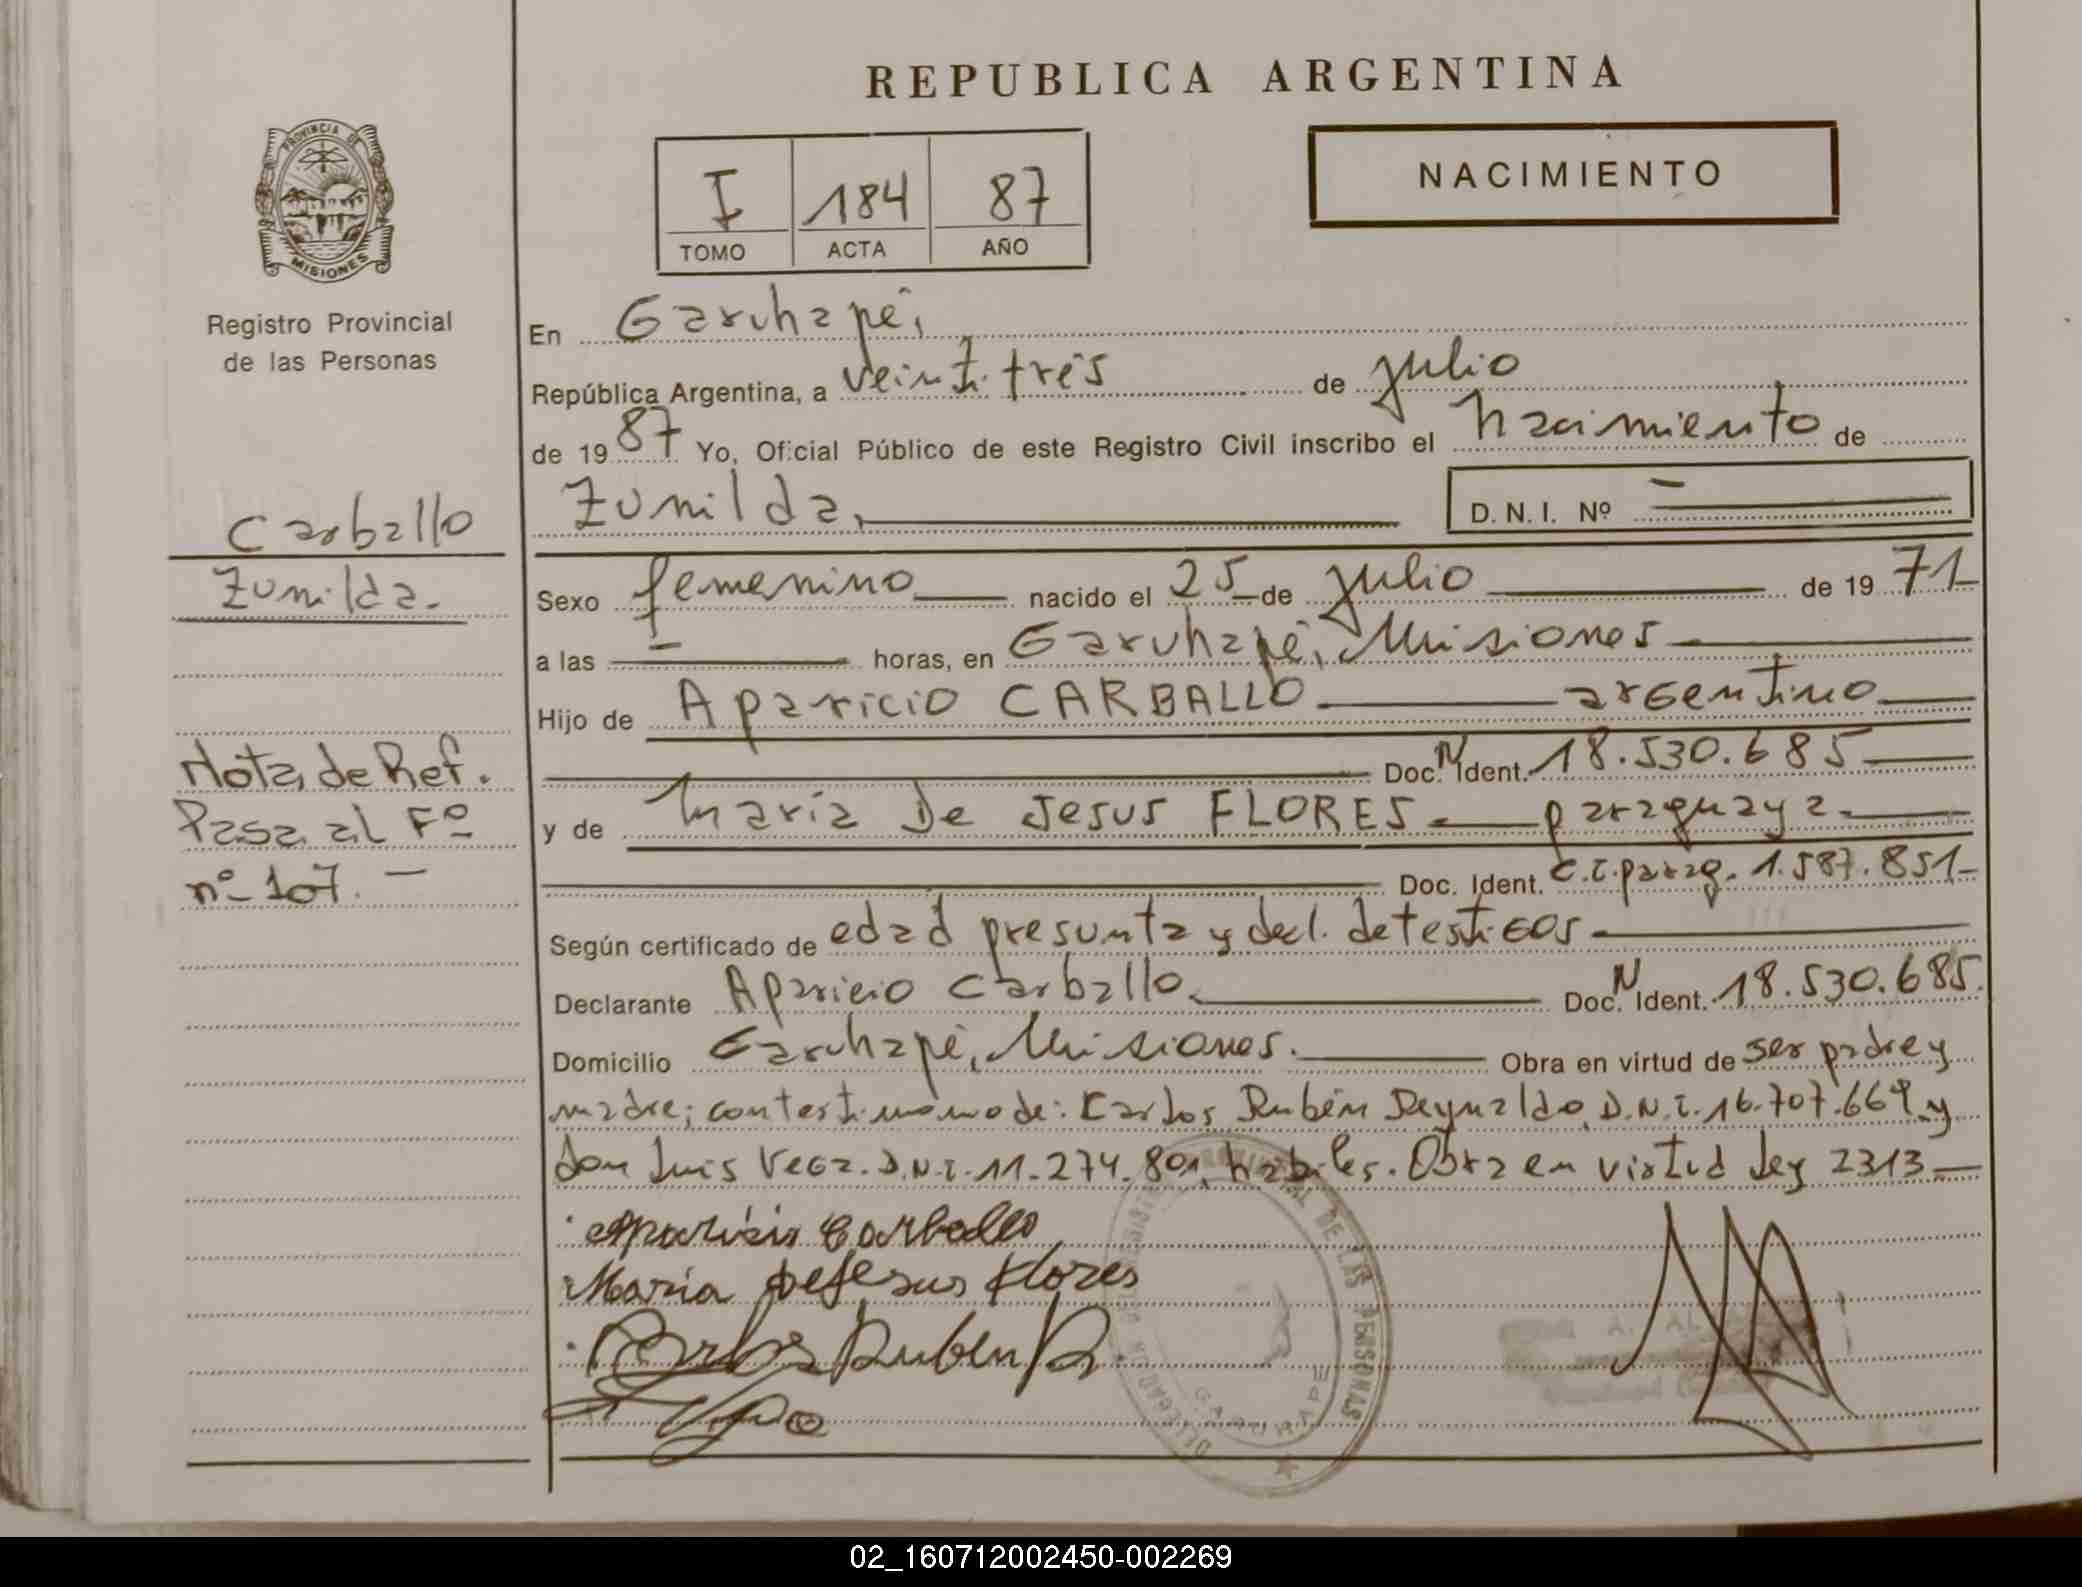 REPUBLICA ARGENTINA
NACIMIENTO
I 184 87
TOMO ACTA AÑO
PROVINCIA DE
MISIONES
Registro Provincial
de las Personas
Carballo
Zunilda.
Nota de Ref.
Pasa al Fº
nº 107. —
En Garuhapé,
República Argentina, a veintitrés de julio
de 1987 Yo, Oficial Público de este Registro Civil inscribo el nacimiento de
Zunilda, D. N. I. Nº —
Sexo femenino nacido el 25 de julio de 1971
a las — horas, en Garuhapé, Misiones
Hijo de Aparicio CARBALLO argentino
Doc. N Ident. 18.530.685
y de María De Jesus FLORES paraguaya
Doc. Ident. C.I. parag. 1.587.851
Según certificado de edad presunta y decl. de testigos
Declarante Aparicio Carballo. Doc. N Ident. 18.530.685.
Domicilio Garuhapé, Misiones. Obra en virtud de ser padre y
madre; con testimonio de: Carlos Rubén Reynaldo, D.N.I. 16.707.669 y
don Luis Vega. D.N.I. 11.274.801, hábiles. Obra en virtud Ley 2313
Aparicio Carballo
Maria de Jesus Flores
Carlos Ruben R.
DE LAS PERSONAS
GARUHAPE
02_160712002450-002269